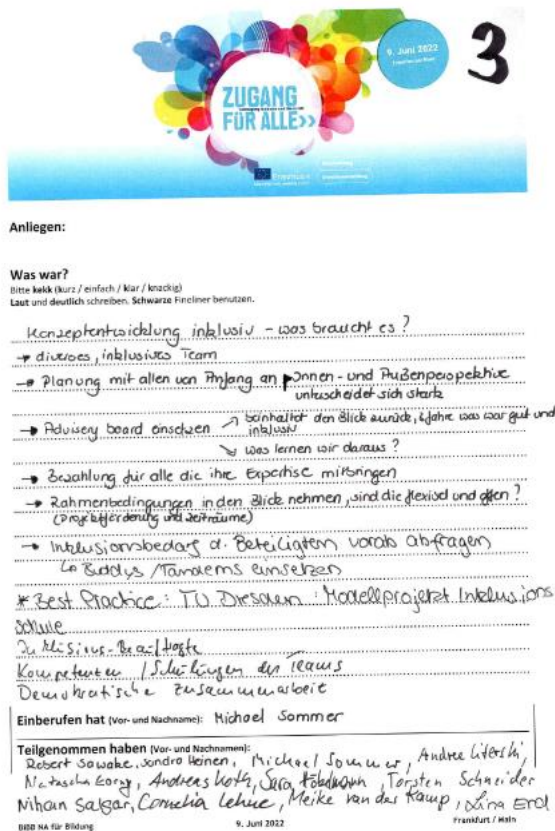 9. Juni 2022
3
ZUGANG
FÜR ALLE>>
Anliegen:
Was war?
Bitte kekk (kurz / einfach / klar / knackig)
Laut und deutlich schreiben. Schwarze Fineliner benutzen.
Konzeptentwicklung inklusiv - was braucht es?
→ diverses, inklusives Team
→ Planung mit allen von Anfang an → Innen- und Außenperspektive
unterscheidet sich stark
→ Advisery board einsetzen ↗ beinhaltet den Blick zurück, 6 Jahre was war gut und
inklusiv
↘ was lernen wir daraus?
→ Bezahlung für alle die ihre Expertise mitbringen
→ Rahmenbedingungen in den Blick nehmen, sind die flexibel und offen?
(Projektförderung und Zeiträume)
→ Inklusionsbedarf d. Beteiligten vorab abfragen
↳ Buddys / Tandems einsetzen
* Best Practice: TU Dresden: Modellprojekt Inklusions
schule
Inklusions-Beauftragte
Kompetenten / Schulungen des Teams
Demokratische Zusammenarbeit
Einberufen hat (Vor- und Nachname): Michael Sommer
Teilgenommen haben (Vor- und Nachnamen):
Robert Sawake, Sandro Heinen, Michael Sommer, Andrea
Natascha Andreas Koth, Sara Torsten Schneider
Nihan Cornelia Meike van der Kamp, Lina Erol
BIBB NA für Bildung 9. Juni 2022 Frankfurt / Main